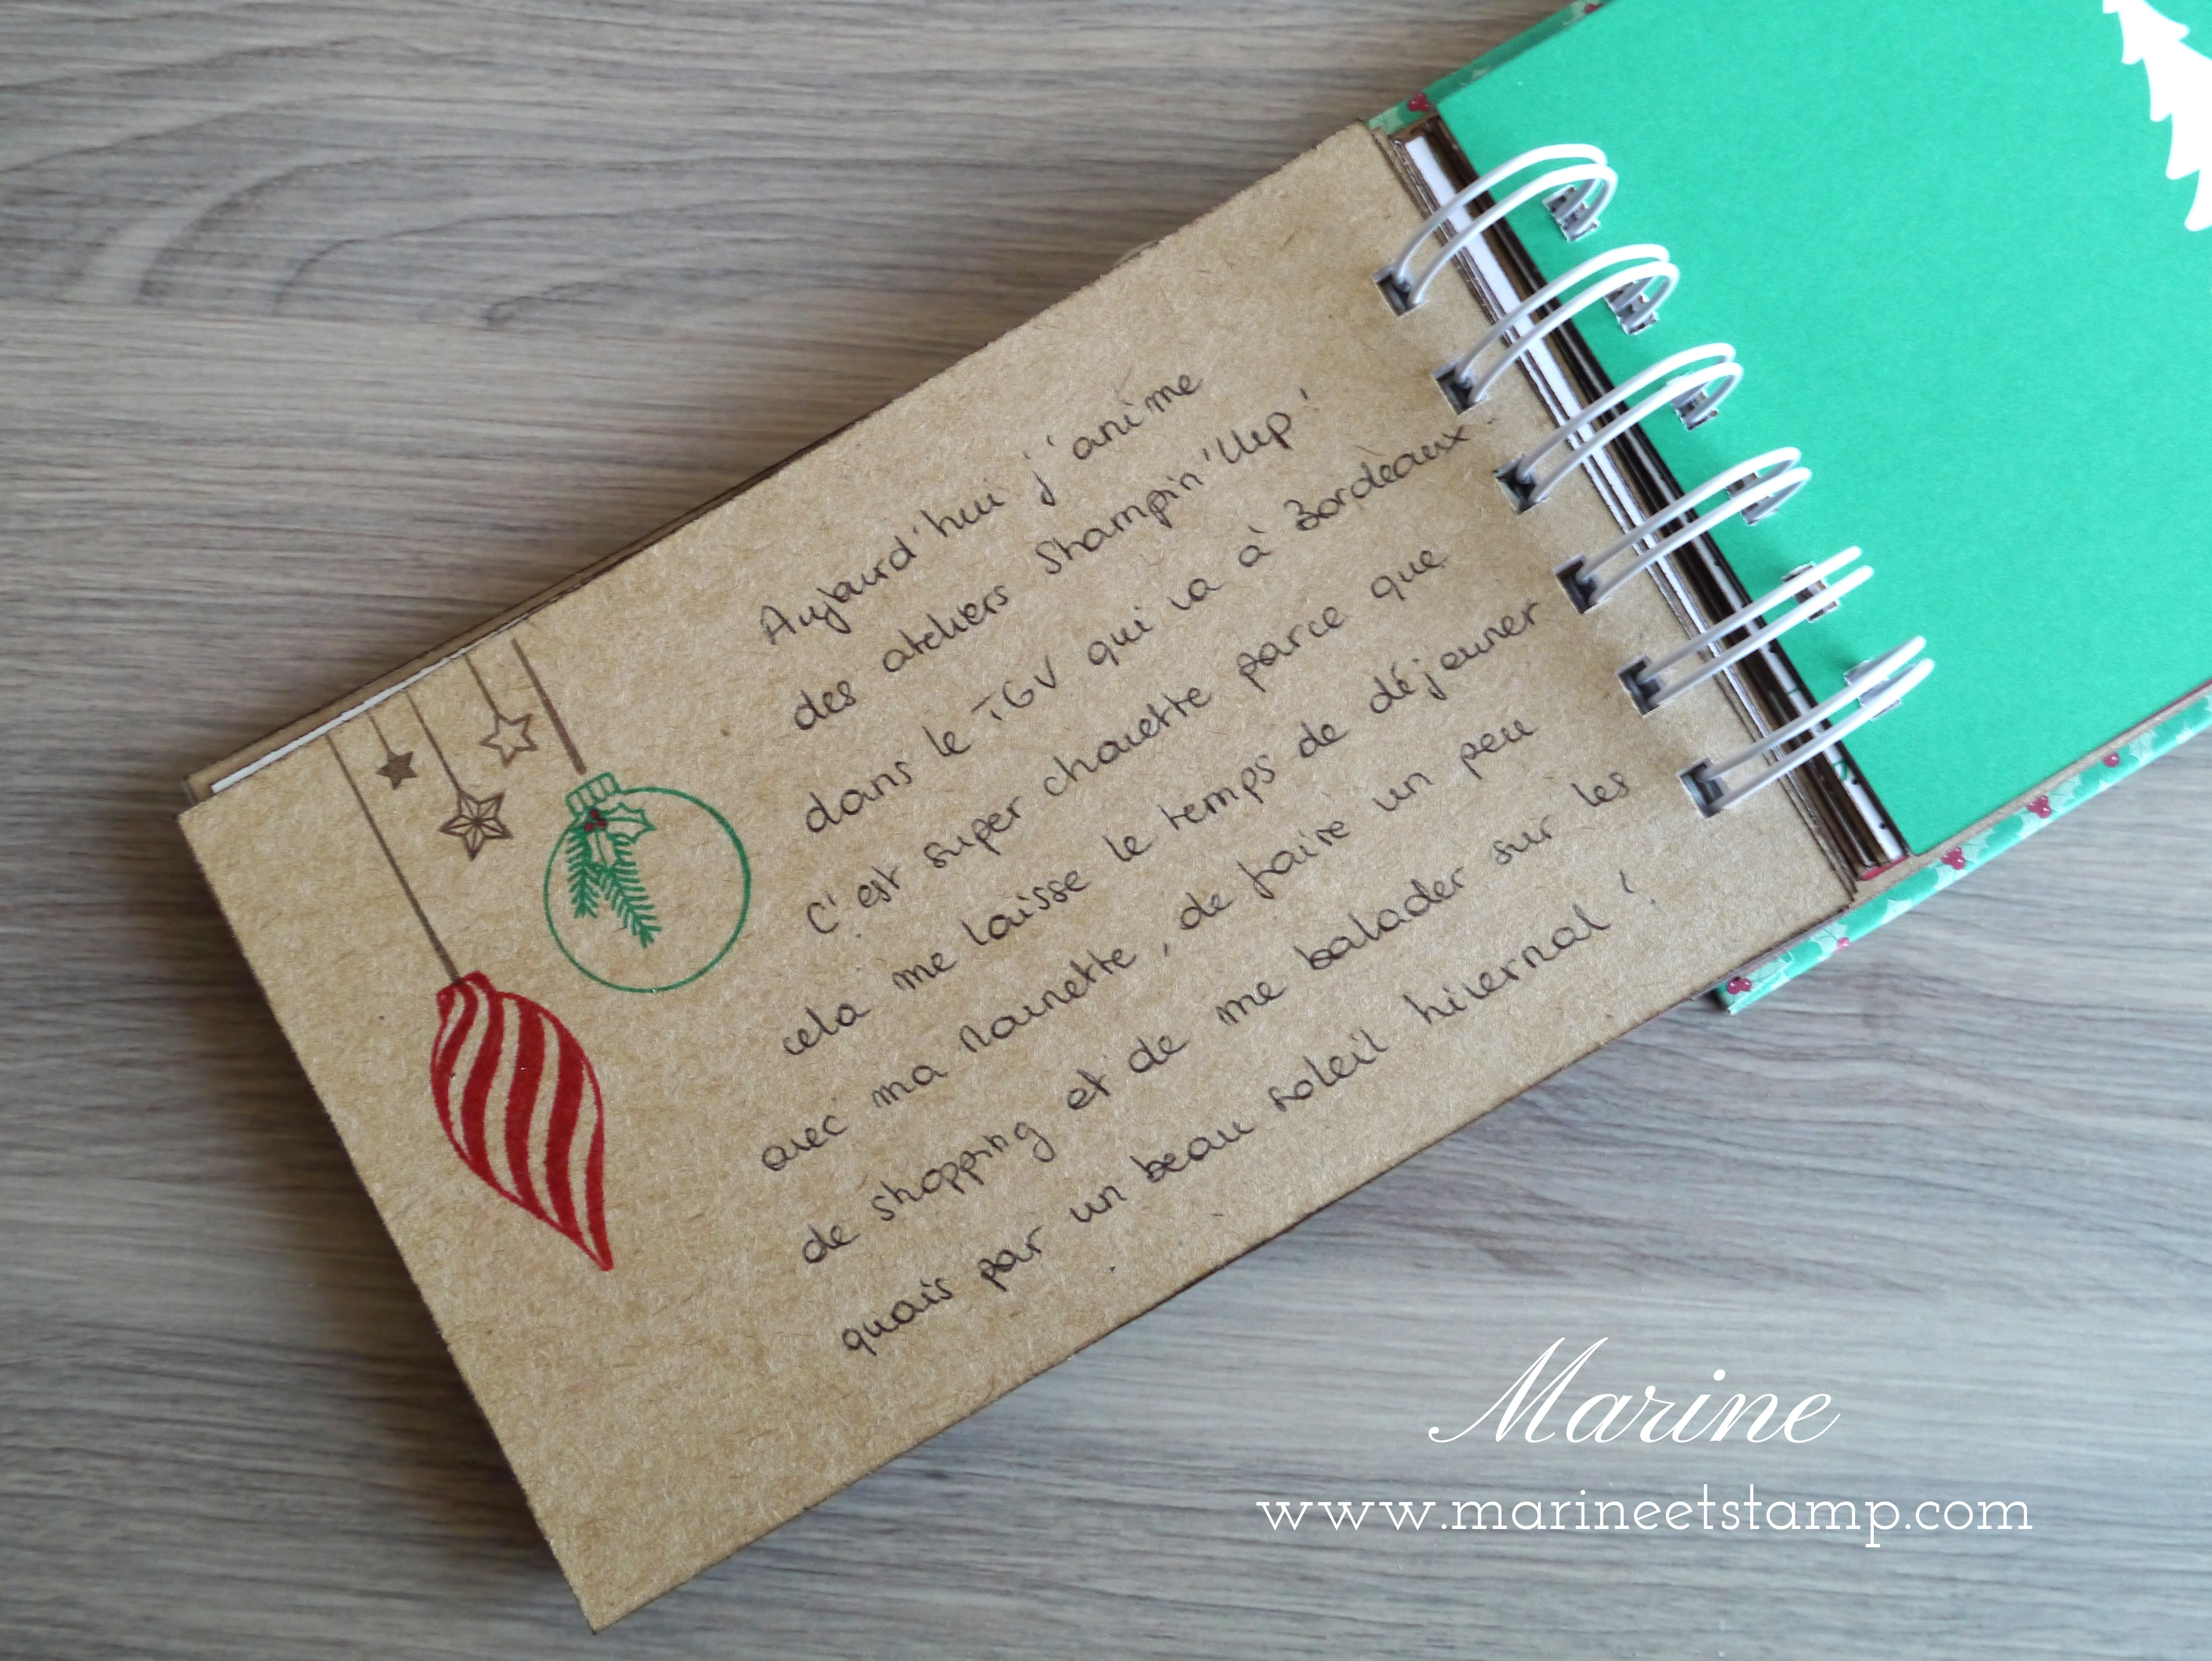 Aujourd'hui j'anime
des ateliers Stampin'Up!
dans le TGV qui va à Bordeaux.
C'est super chouette parce que
cela me laisse le temps de déjeuner
avec ma Nounette, de faire un peu
de shopping et de me balader sur les
quais par un beau soleil hivernal !
Marine
www.marineetstamp.com